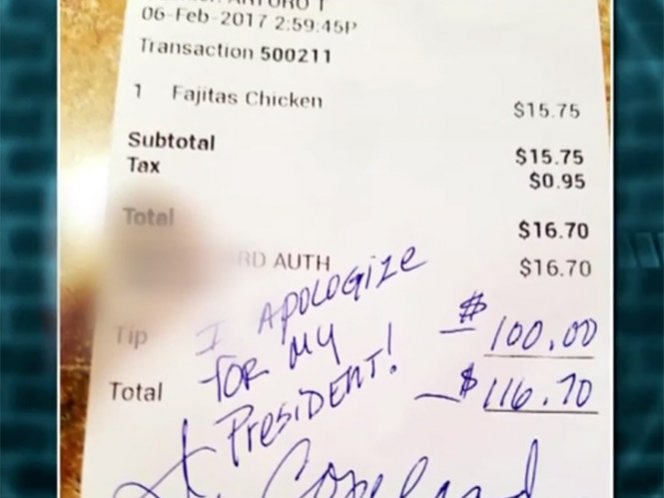 ARTURO T
06-Feb-2017 2:59:45P
Transaction 500211
1 Fajitas Chicken $15.75
Subtotal $15.75
Tax $0.95
Total $16.70
RD AUTH $16.70
Tip $100.00
Total $116.70
I APOLOGIZE
FOR MY
PRESIDENT!
Copeland